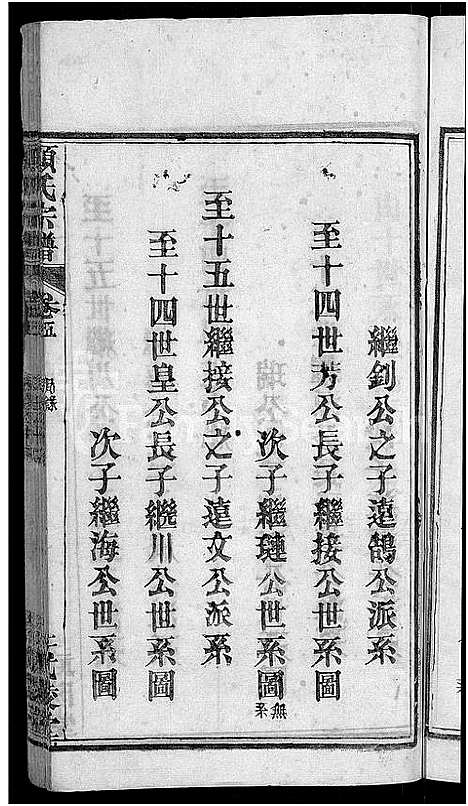 繼釗公之子遠鵠公派系
至十四世芳公長子繼接公世系圖
次子繼璉公世系圖無系
至十五世繼接公之子遠文公派系
至十四世皇公長子繼川公世系圖
次子繼海公世系圖
氏宗譜
卷五